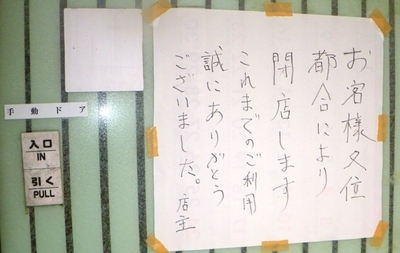 お客様各位
都合により
閉店します
これまでのご利用
誠にありがとう
ございました。店主
手動ドア
入口
IN
引く
PULL